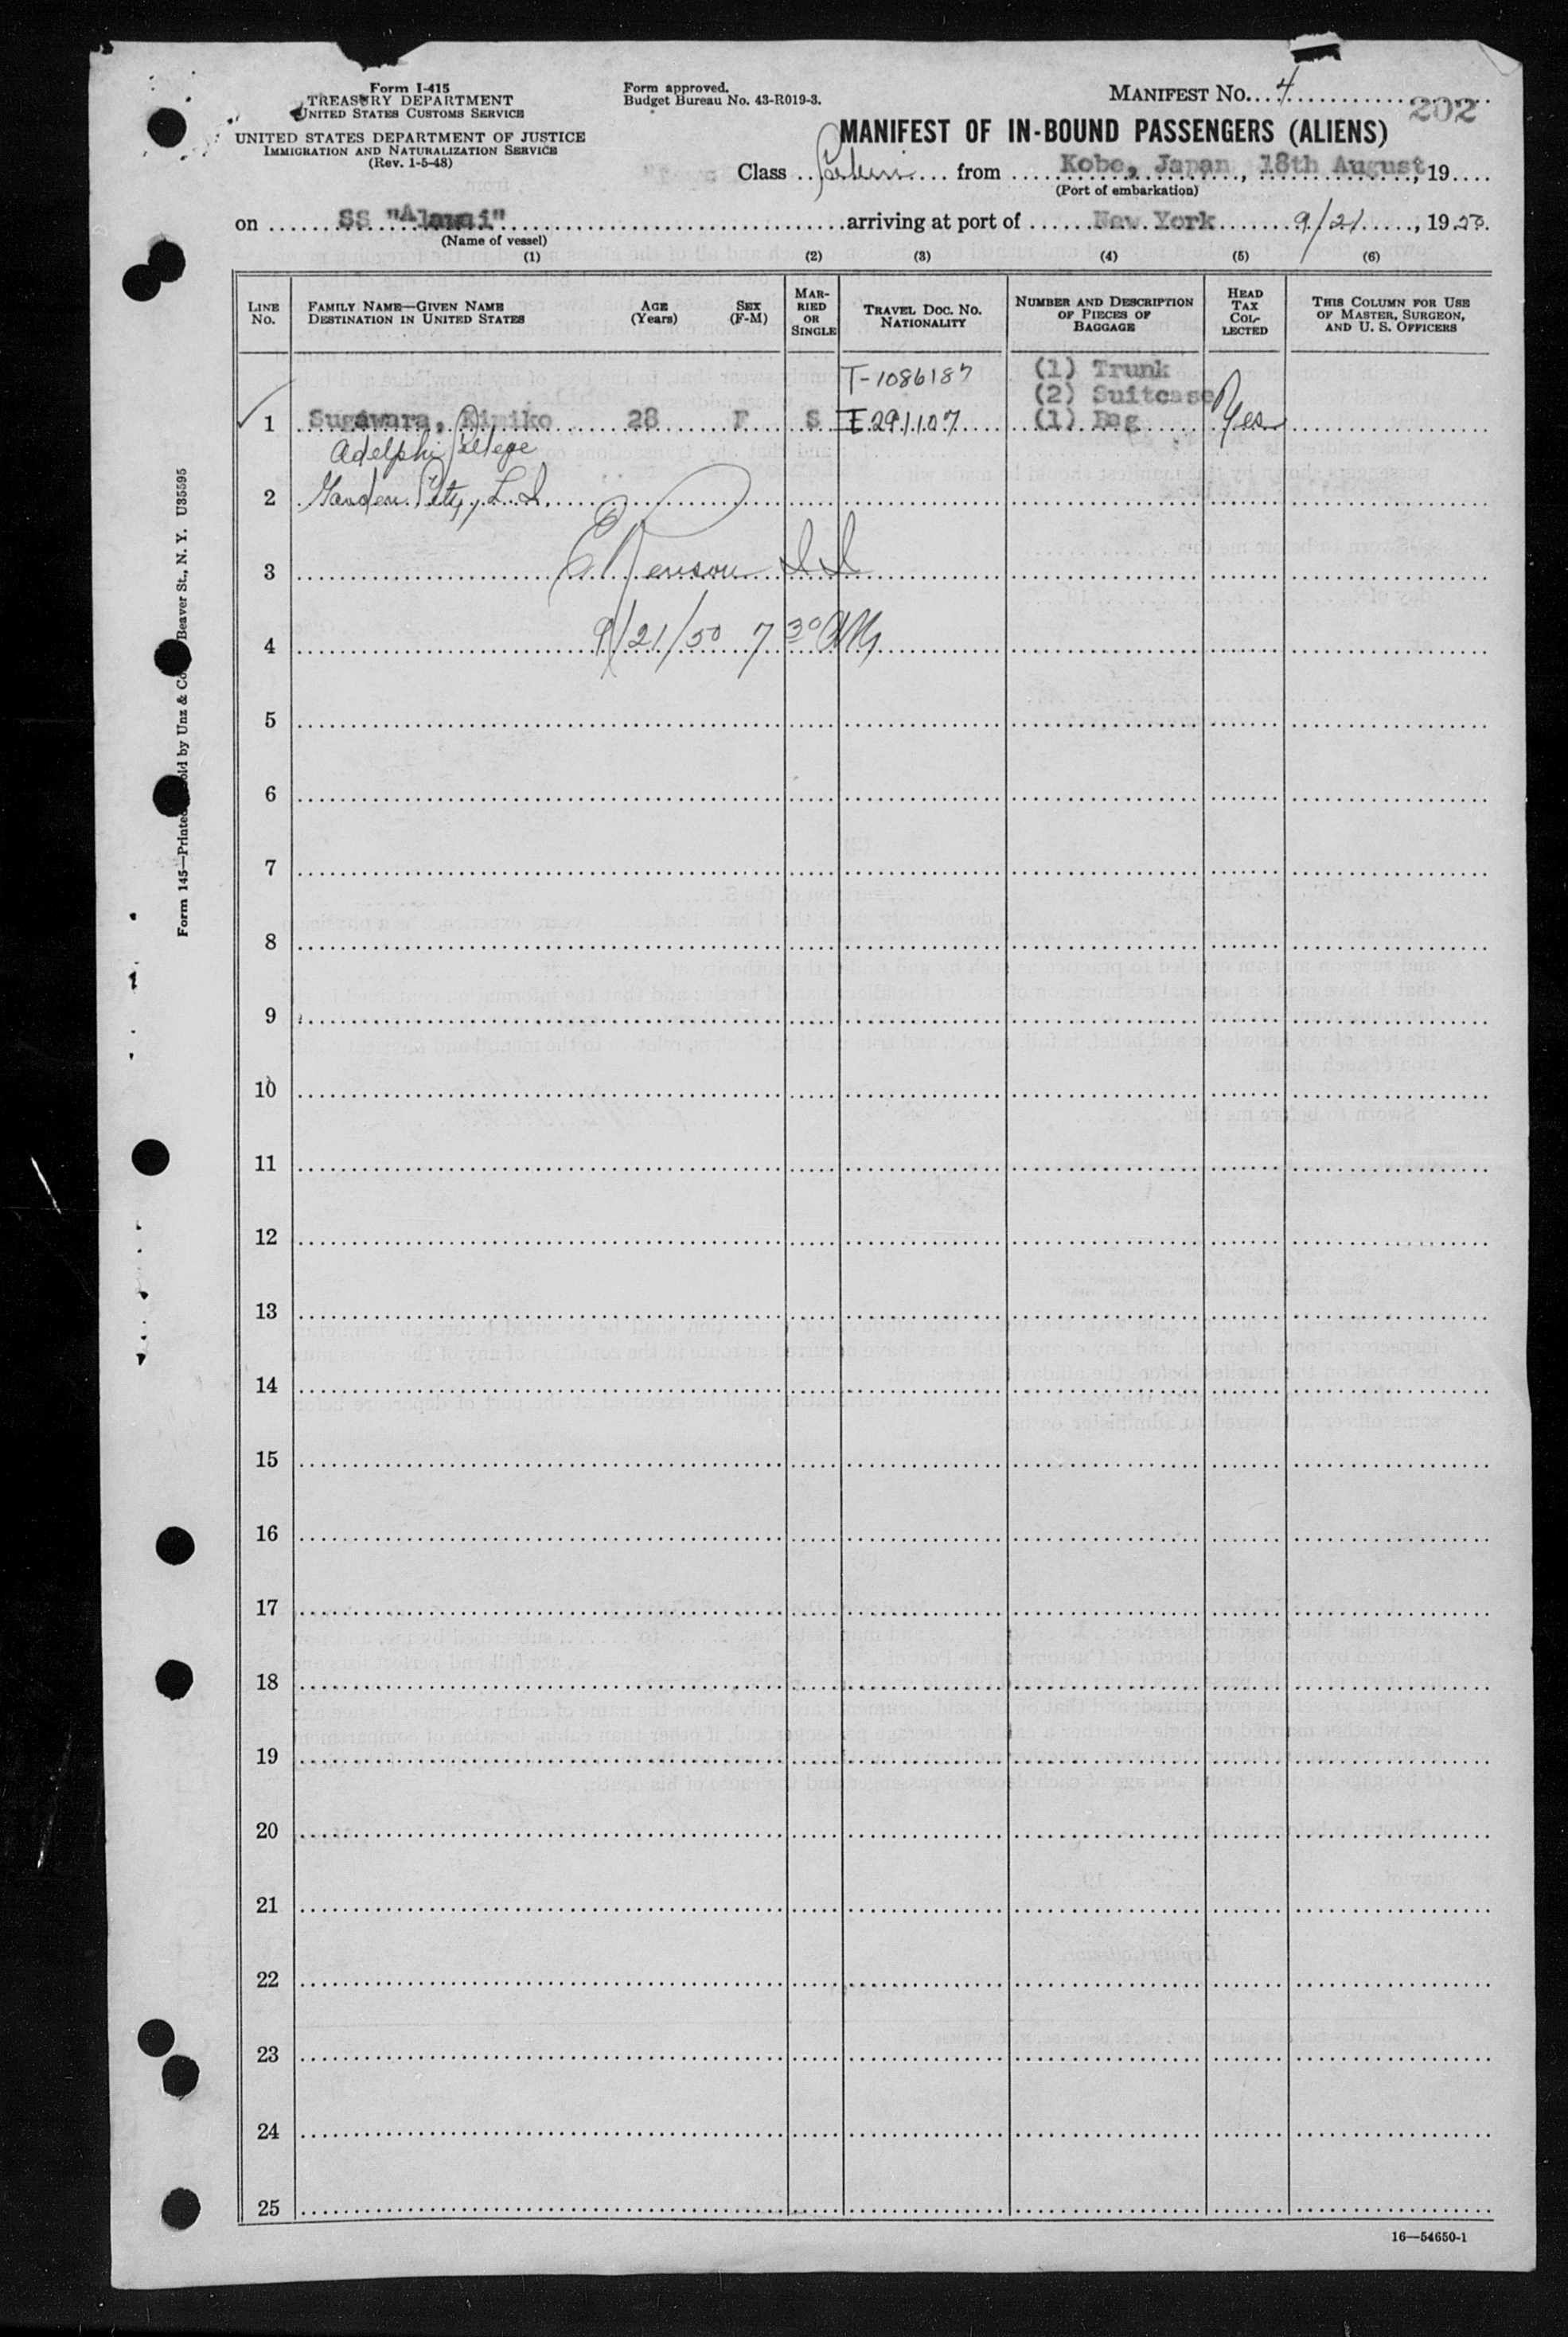 Form I-415
TREASURY DEPARTMENT
UNITED STATES CUSTOMS SERVICE
UNITED STATES DEPARTMENT OF JUSTICE
IMMIGRATION AND NATURALIZATION SERVICE
(Rev. 1-5-48)
Form approved.
Budget Bureau No. 43-R019-3.
MANIFEST NO. 4
202
MANIFEST OF IN-BOUND PASSENGERS (ALIENS)
Class from Kobe, Japan, 18th August, 19
(Port of embarkation)
on SS "Alawai" arriving at port of New York 9/21, 1950.
(Name of vessel)
(1) (2) (3) (4) (5) (6)
LINE NO.
FAMILY NAME—GIVEN NAME DESTINATION IN UNITED STATES
AGE (Years)
SEX (F-M)
MARRIED OR SINGLE
TRAVEL DOC. NO. NATIONALITY
NUMBER AND DESCRIPTION OF PIECES OF BAGGAGE
HEAD TAX COLLECTED
THIS COLUMN FOR USE OF MASTER, SURGEON, AND U. S. OFFICERS
T-1086187 (1) Trunk
(2) Suitcase
1 Sugawara, Kimiko 28 F S I 291107 (1) Bag Yes
Adelphi College
2 Garden City, L.I.
3
4 9/21/50 7 30 AM
5
6
7
8
9
10
11
12
13
14
15
16
17
18
19
20
21
22
23
24
25
16—54650-1
Form 145—Printed old by Unz & Co Beaver St., N. Y. U35595